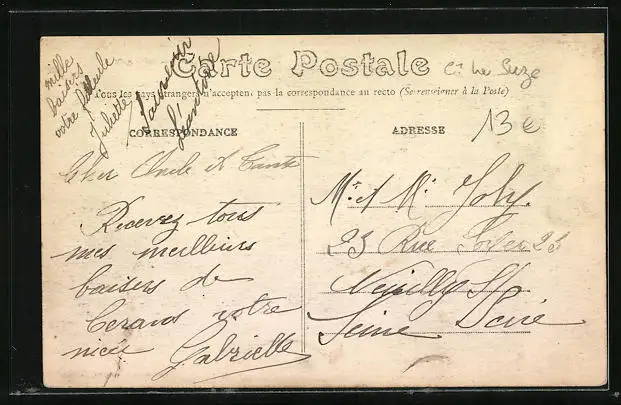 mille
baisers
votre filleule
Juliette
Carte Postale
Tous les pays étrangers n'acceptent pas la correspondance au recto (Se renseigner à la Poste)
CORRESPONDANCE
Cher Oncle et Tante
Recevez tous
mes meilleurs
baisers de
votre
nièce Gabrielle
La Suze
13e
ADRESSE
Mr et Me Joly
23 Rue 23
Neuilly
Seine